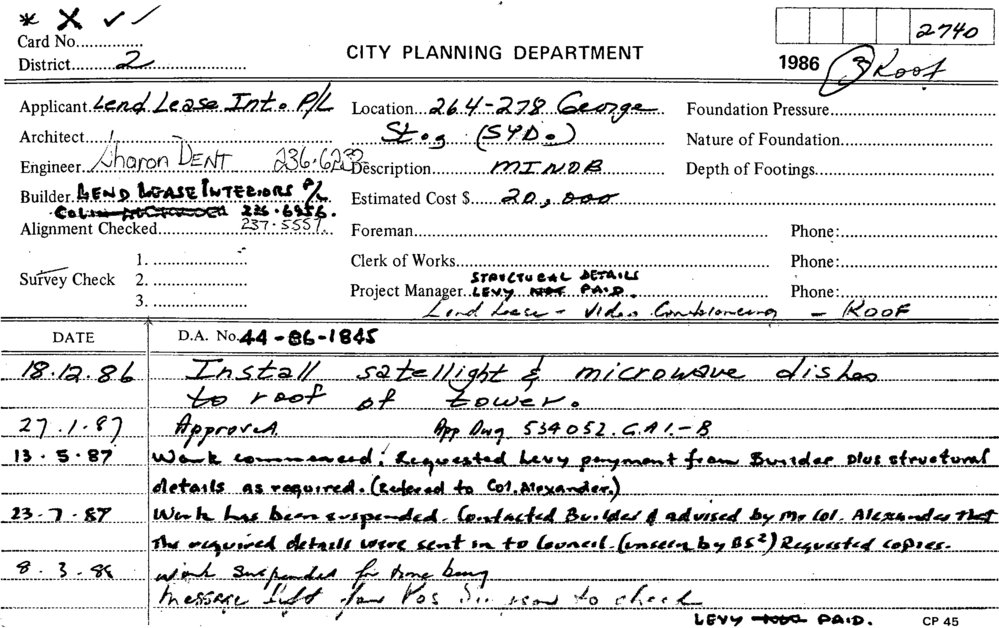 Card No.
CITY PLANNING DEPARTMENT
2740
District 2
1986 3 Roof
Applicant Lend Lease Int. P/L Location 264-278 George Foundation Pressure
Architect St. (SYD.) Nature of Foundation
Engineer Sharon DENT 236.6232 Description MINOB Depth of Footings
Builder LEND LEASE INTERIORS P/L Estimated Cost $ 20,000
236.6956.
Alignment Checked 237.5557. Foreman Phone:
Survey Check 1. Clerk of Works Phone:
2. STRUCTURAL DETAILS
3. Project Manager LEVY NOT PAID. Phone:
Lend Lease - Video Conferencing - ROOF
DATE D.A. No. 44-86-1845
18.12.86 Install satellight & microwave dishes
to roof of tower.
27.1.87 Approved. App Dwg 534052.G.A1.-B
13.5.87 Work commenced. Requested Levy payment from Builder plus structural
details as required. (Refered to Col. Alexander.)
23-7-87 Work has been suspended. Contacted Builder & advised by Mr Col. Alexander that
the required details were sent in to Council. (unseen by BS2) Requested copies.
8.3.88 work suspended for time being
message left for to check
LEVY NOT PAID. CP 45